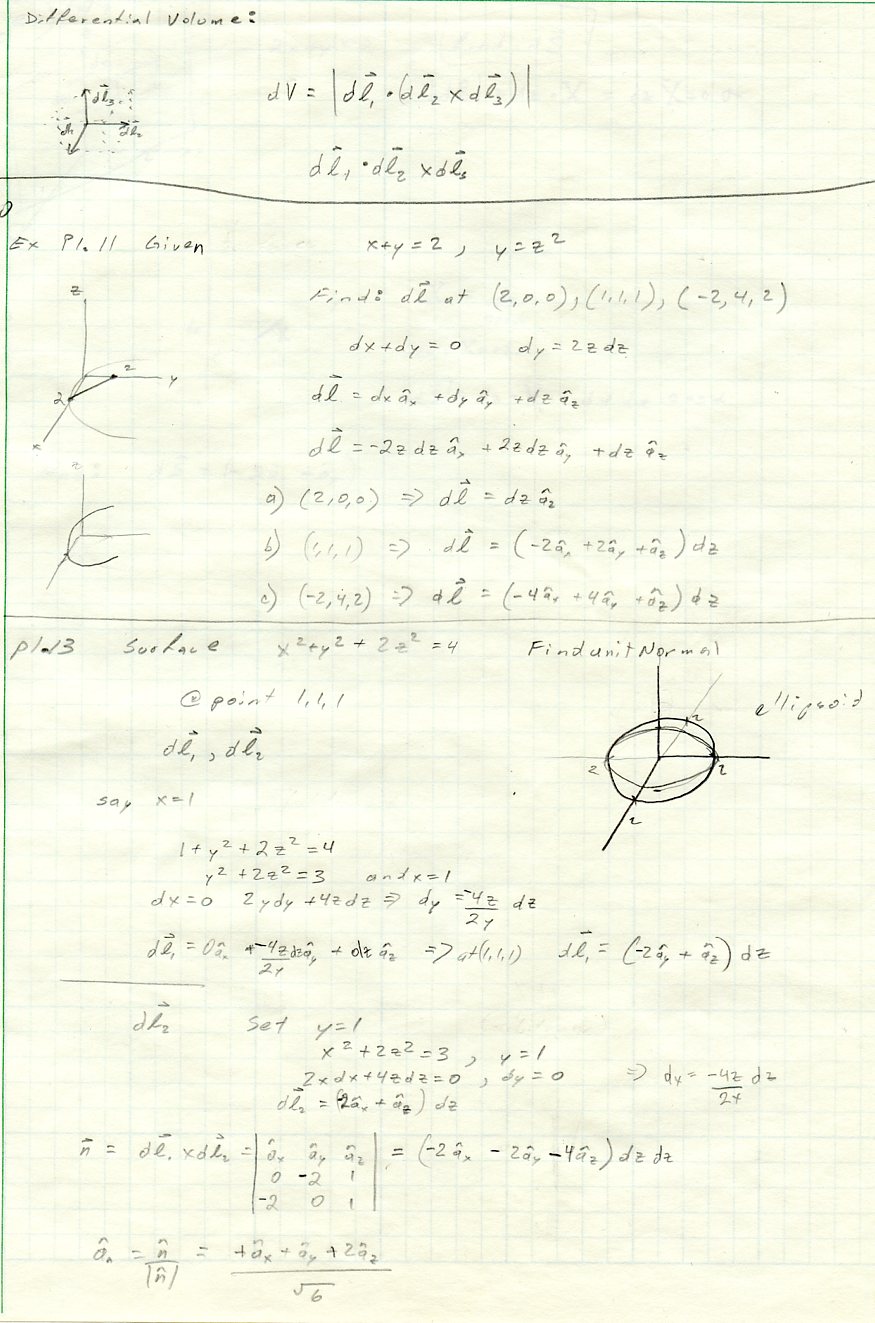 Differential Volume:
dV = |dl⃗₁ · (dl⃗₂ × dl⃗₃)|
dl⃗₃
dl₁ dl₂
dl⃗₁ · dl⃗₂ × dl⃗₃
Ex P1.11 Given x+y=2 , y=z²
Find: dl⃗ at (2,0,0), (1,1,1), (-2,4,2)
z
dx+dy=0 dy=2zdz
2 y
2
dl⃗ = dx âₓ + dy â_y + dz â_z
x
dl⃗ = -2zdz âₓ + 2zdz â_y + dz â_z
z
a) (2,0,0) => dl⃗ = dz â_z
b) (1,1,1) => dl⃗ = (-2âₓ + 2â_y + â_z) dz
c) (-2,4,2) => dl⃗ = (-4âₓ + 4â_y + â_z) dz
P1.13 Surface x²+y²+2z²=4 Find unit Normal
@ point 1,1,1
ellipsoid
dl⃗₁ , dl⃗₂
2 2 2 2
say x=1
1+y²+2z²=4
y²+2z²=3 and x=1
dx=0 2ydy+4zdz => dy = -4z/2y dz
dl⃗₁ = 0âₓ + -4z/2y dz â_y + dz â_z => at (1,1,1) dl⃗₁ = (-2â_y + â_z) dz
dl⃗₂ Set y=1
x²+2z²=3 , y=1
2xdx+4zdz=0 , dy=0 => dx = -4z/2x dz
dl⃗₂ = (-2âₓ + â_z) dz
n⃗ = dl⃗₁ × dl⃗₂ = | âₓ â_y â_z | = (-2âₓ - 2â_y - 4â_z) dz dz
0 -2 1
-2 0 1
âₙ = n̂/|n̂| = +âₓ + â_y + 2â_z / √6